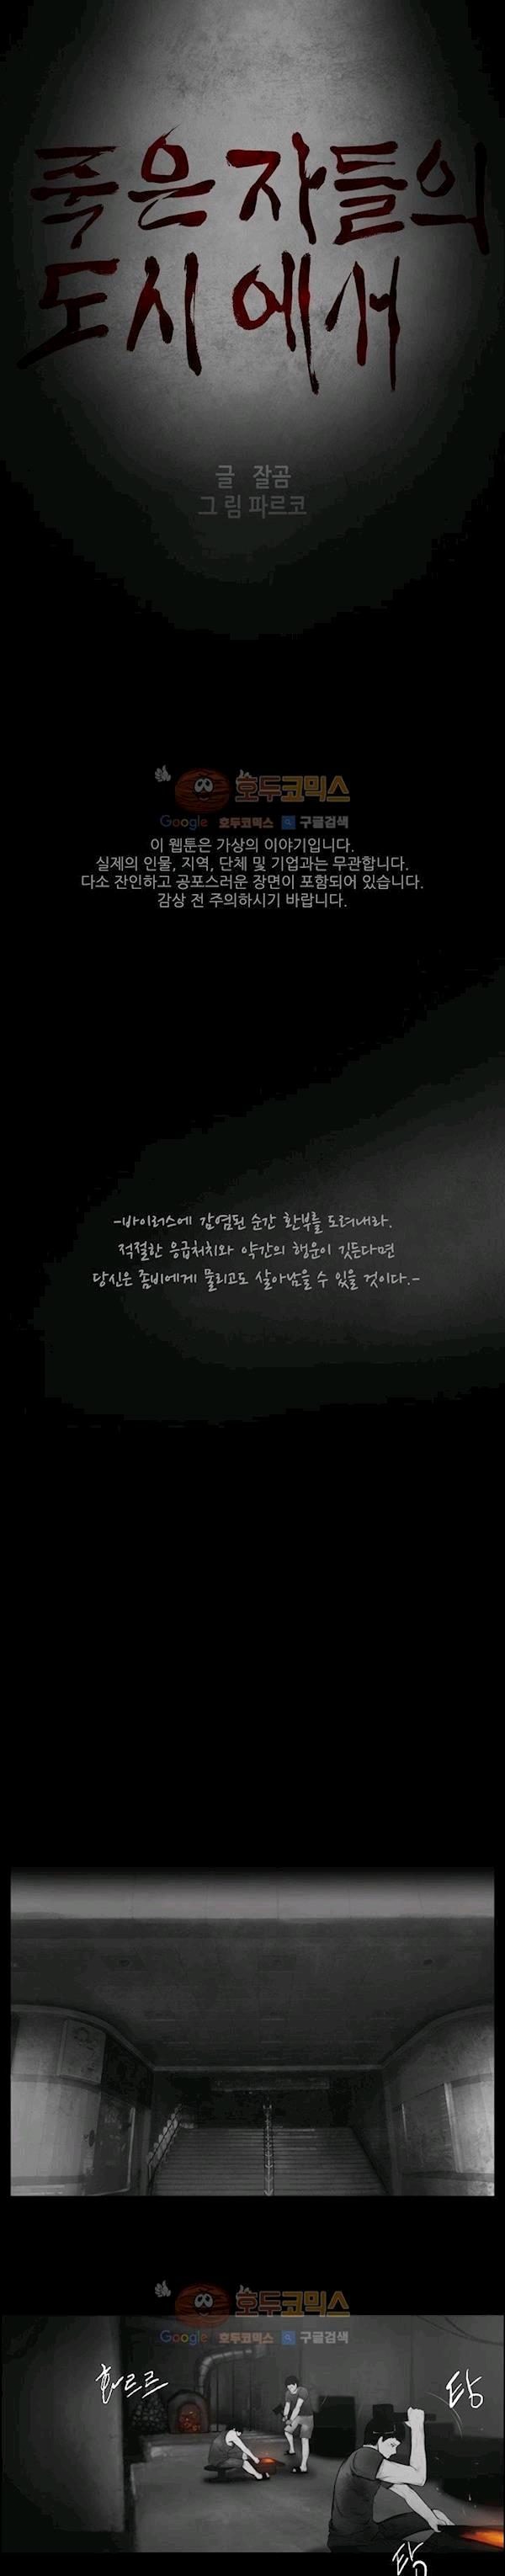 죽은 자들의
도시에서
글 잘곰
그림 파르코
호두코믹스
Google 호두코믹스 구글검색
이 웹툰은 가상의 이야기입니다.
실제의 인물, 지역, 단체 및 기업과는 무관합니다.
다소 잔인하고 공포스러운 장면이 포함되어 있습니다.
감상 전 주의하시기 바랍니다.
-바이러스에 감염된 순간 환부를 도려내라.
적절한 응급처치와 약간의 행운이 깃든다면
당신은 좀비에게 물리고도 살아남을 수 있을 것이다.-
호두코믹스
Google 호두코믹스 구글검색
화르르
탕
탁